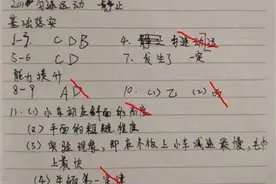 匀速运动 静止
基础落实
1-3. C D B 4. 静止 匀速运动
5-6 C D 7. 发生了 一定
能力提升
8-9 A D 10. (1)乙 (2)丙
11. (1)小车都在斜面的高度
(2)平面的粗糙程度
(3)实验现象,即在木板上小车减速最慢,毛巾
上最快
(4)牛顿第一定律